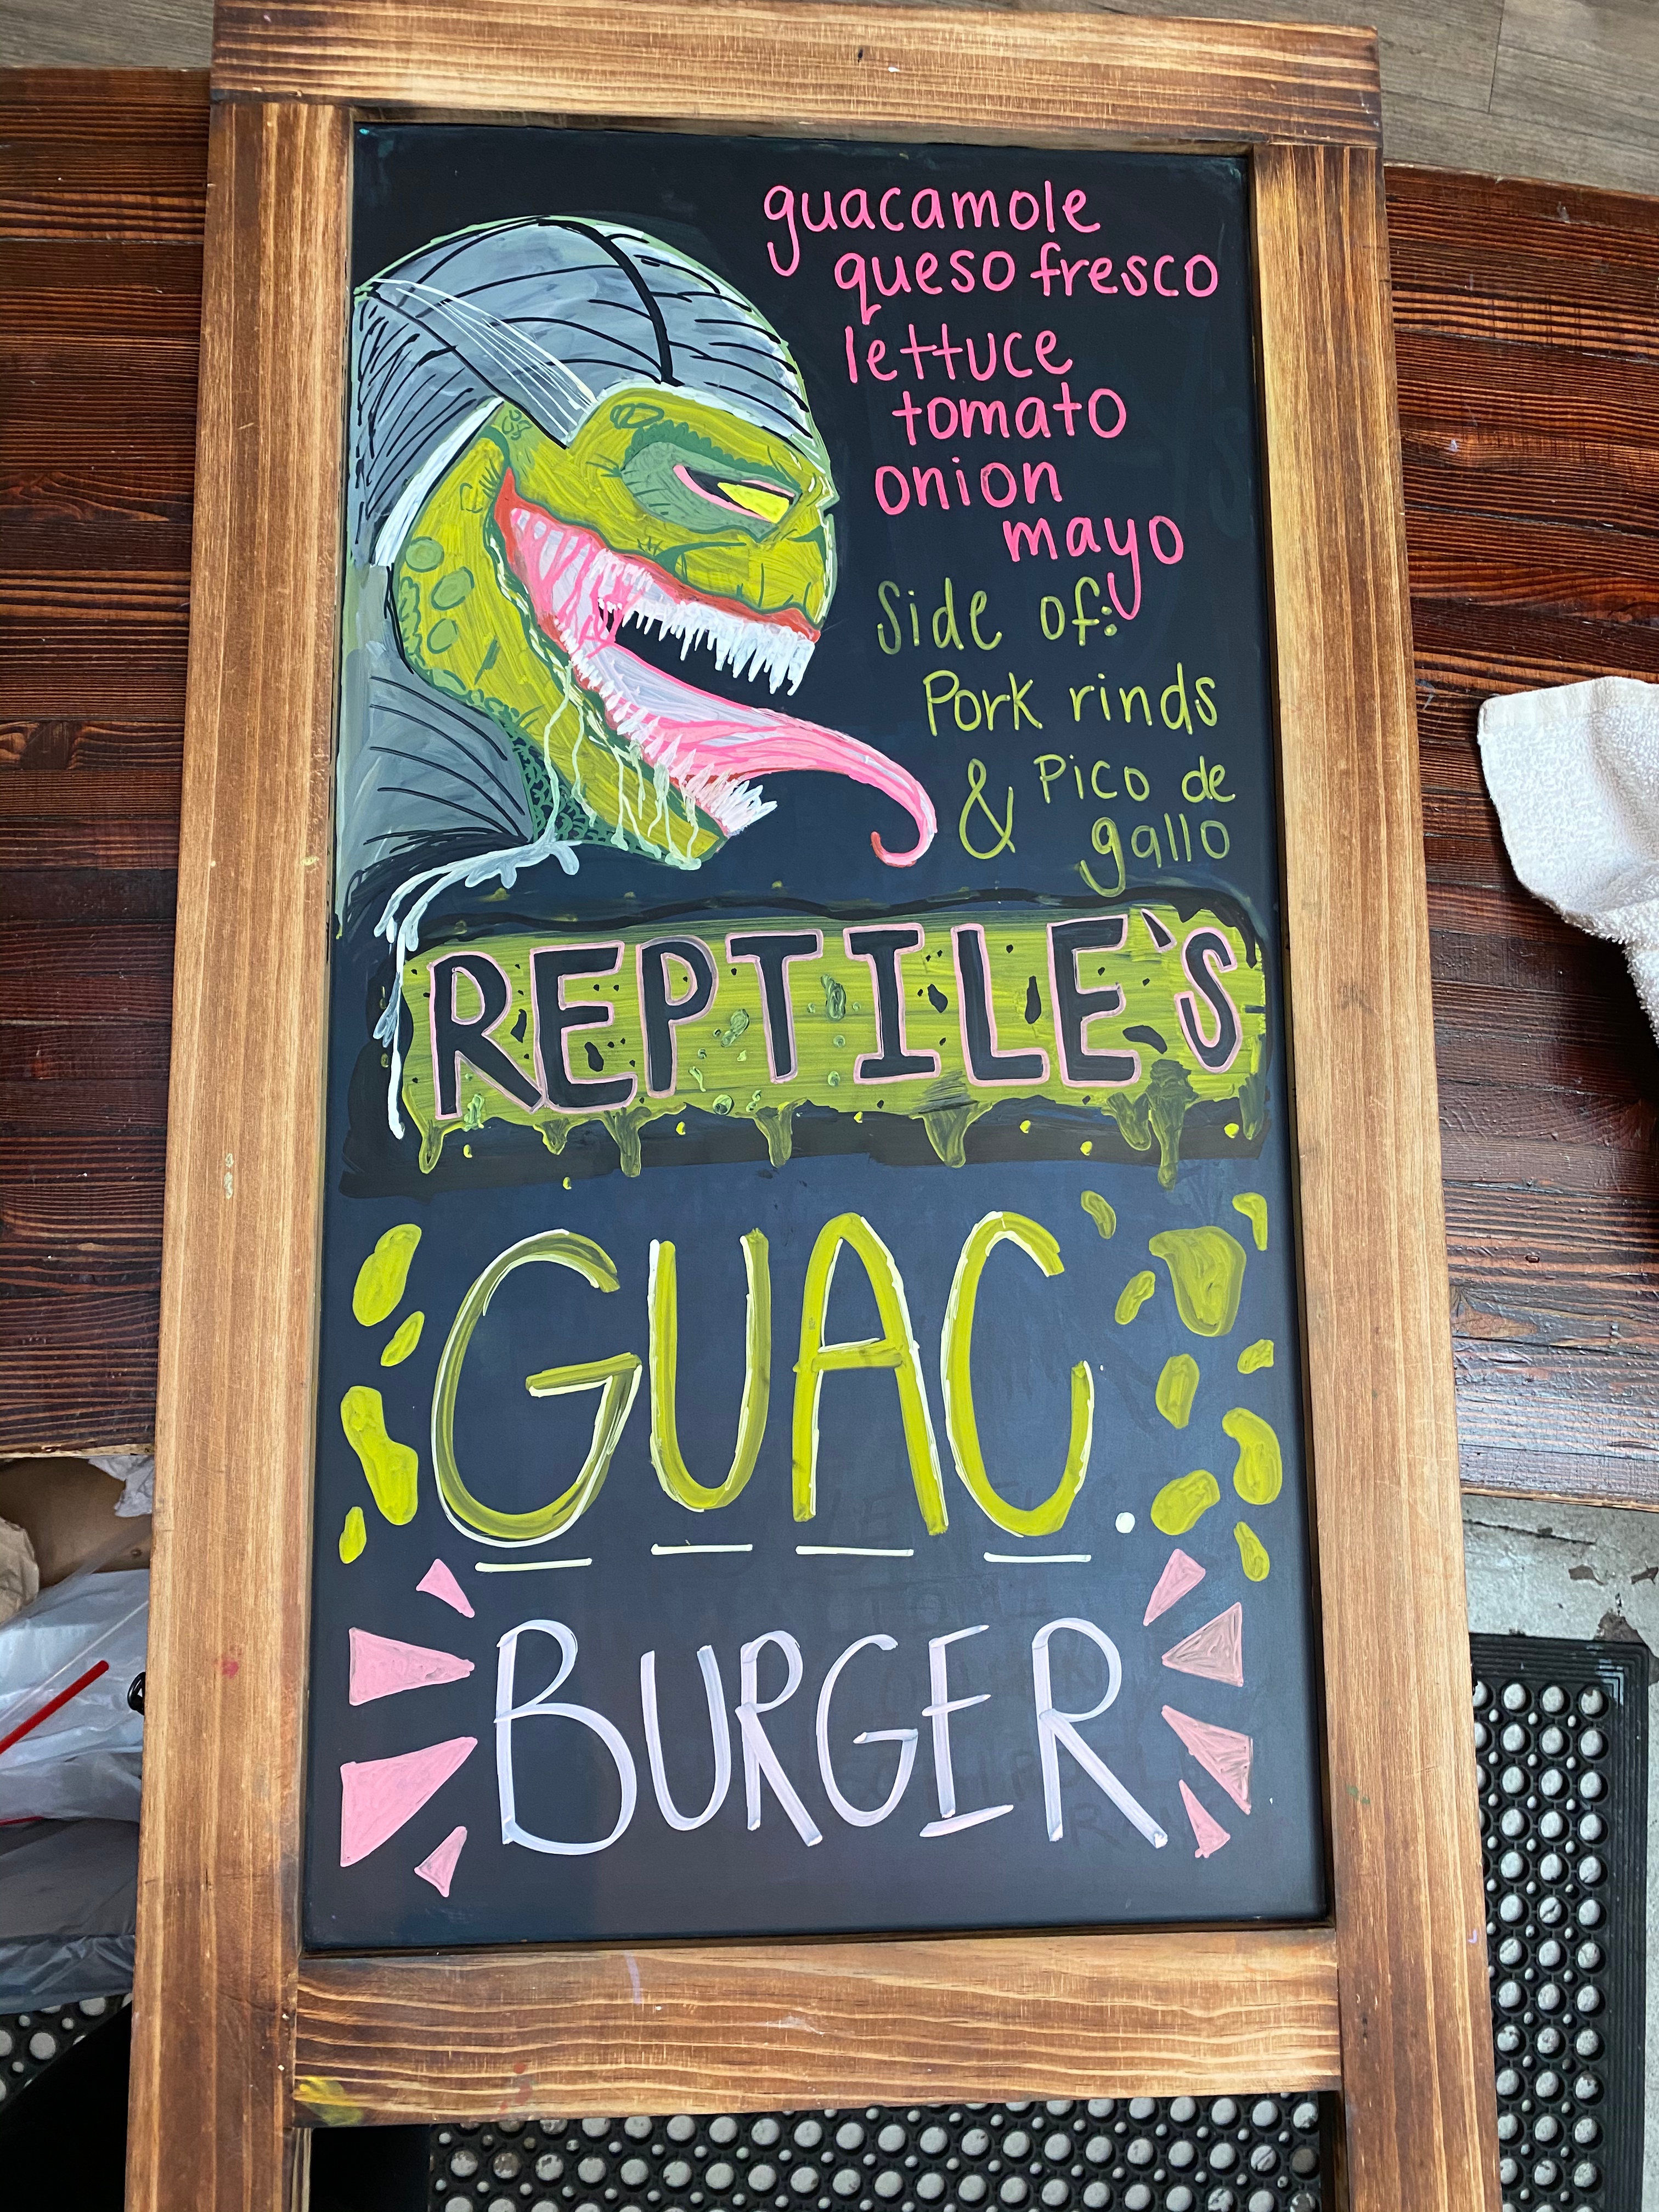 guacamole
queso fresco
lettuce
tomato
onion
mayo
Side of:
Pork rinds
& Pico de
gallo
REPTILE'S
GUAC.
BURGER